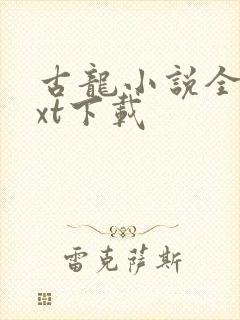 古龍小説全
xt下載
雷克萨斯